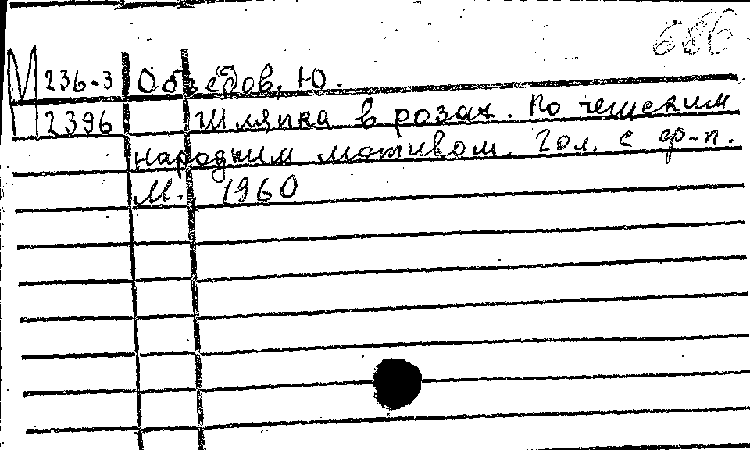 686
М 236-3 Обведов, Ю.
2396 Шляпка в розах. По чешским
народным мотивам. Гол. с ф-п.
М. 1960